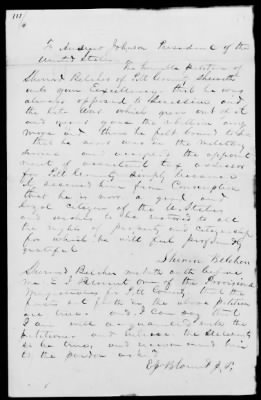 To Andrew Johnson President of the
United States
The humble petition of
Sherrod Belcher of Pitt County Sheweth
unto your Excellency that he was
always opposed to Secession and
the late War which grew out of it
and gave your rebellion any
more aid than he felt bound to do
that he never was in the military
service and accepted the appoint
ment of assistant tax assessor
for Pitt County simply because
it secured him from Conscription
that he is now a good and
loyal citizen of the U. States
and wishes to be restored to all
the rights of property and citizenship
for which he will feel profoundly
grateful
Sherrod Belcher
Sherrod Belcher maketh oath before
me one of the Provisional
Justices for Pitt County that the
facts set forth in the above petition
are true. and I can say that
I am well acquainted with the
petitioner and believe the statements
to be true, and recommend him
to the pardon asked
J. P.